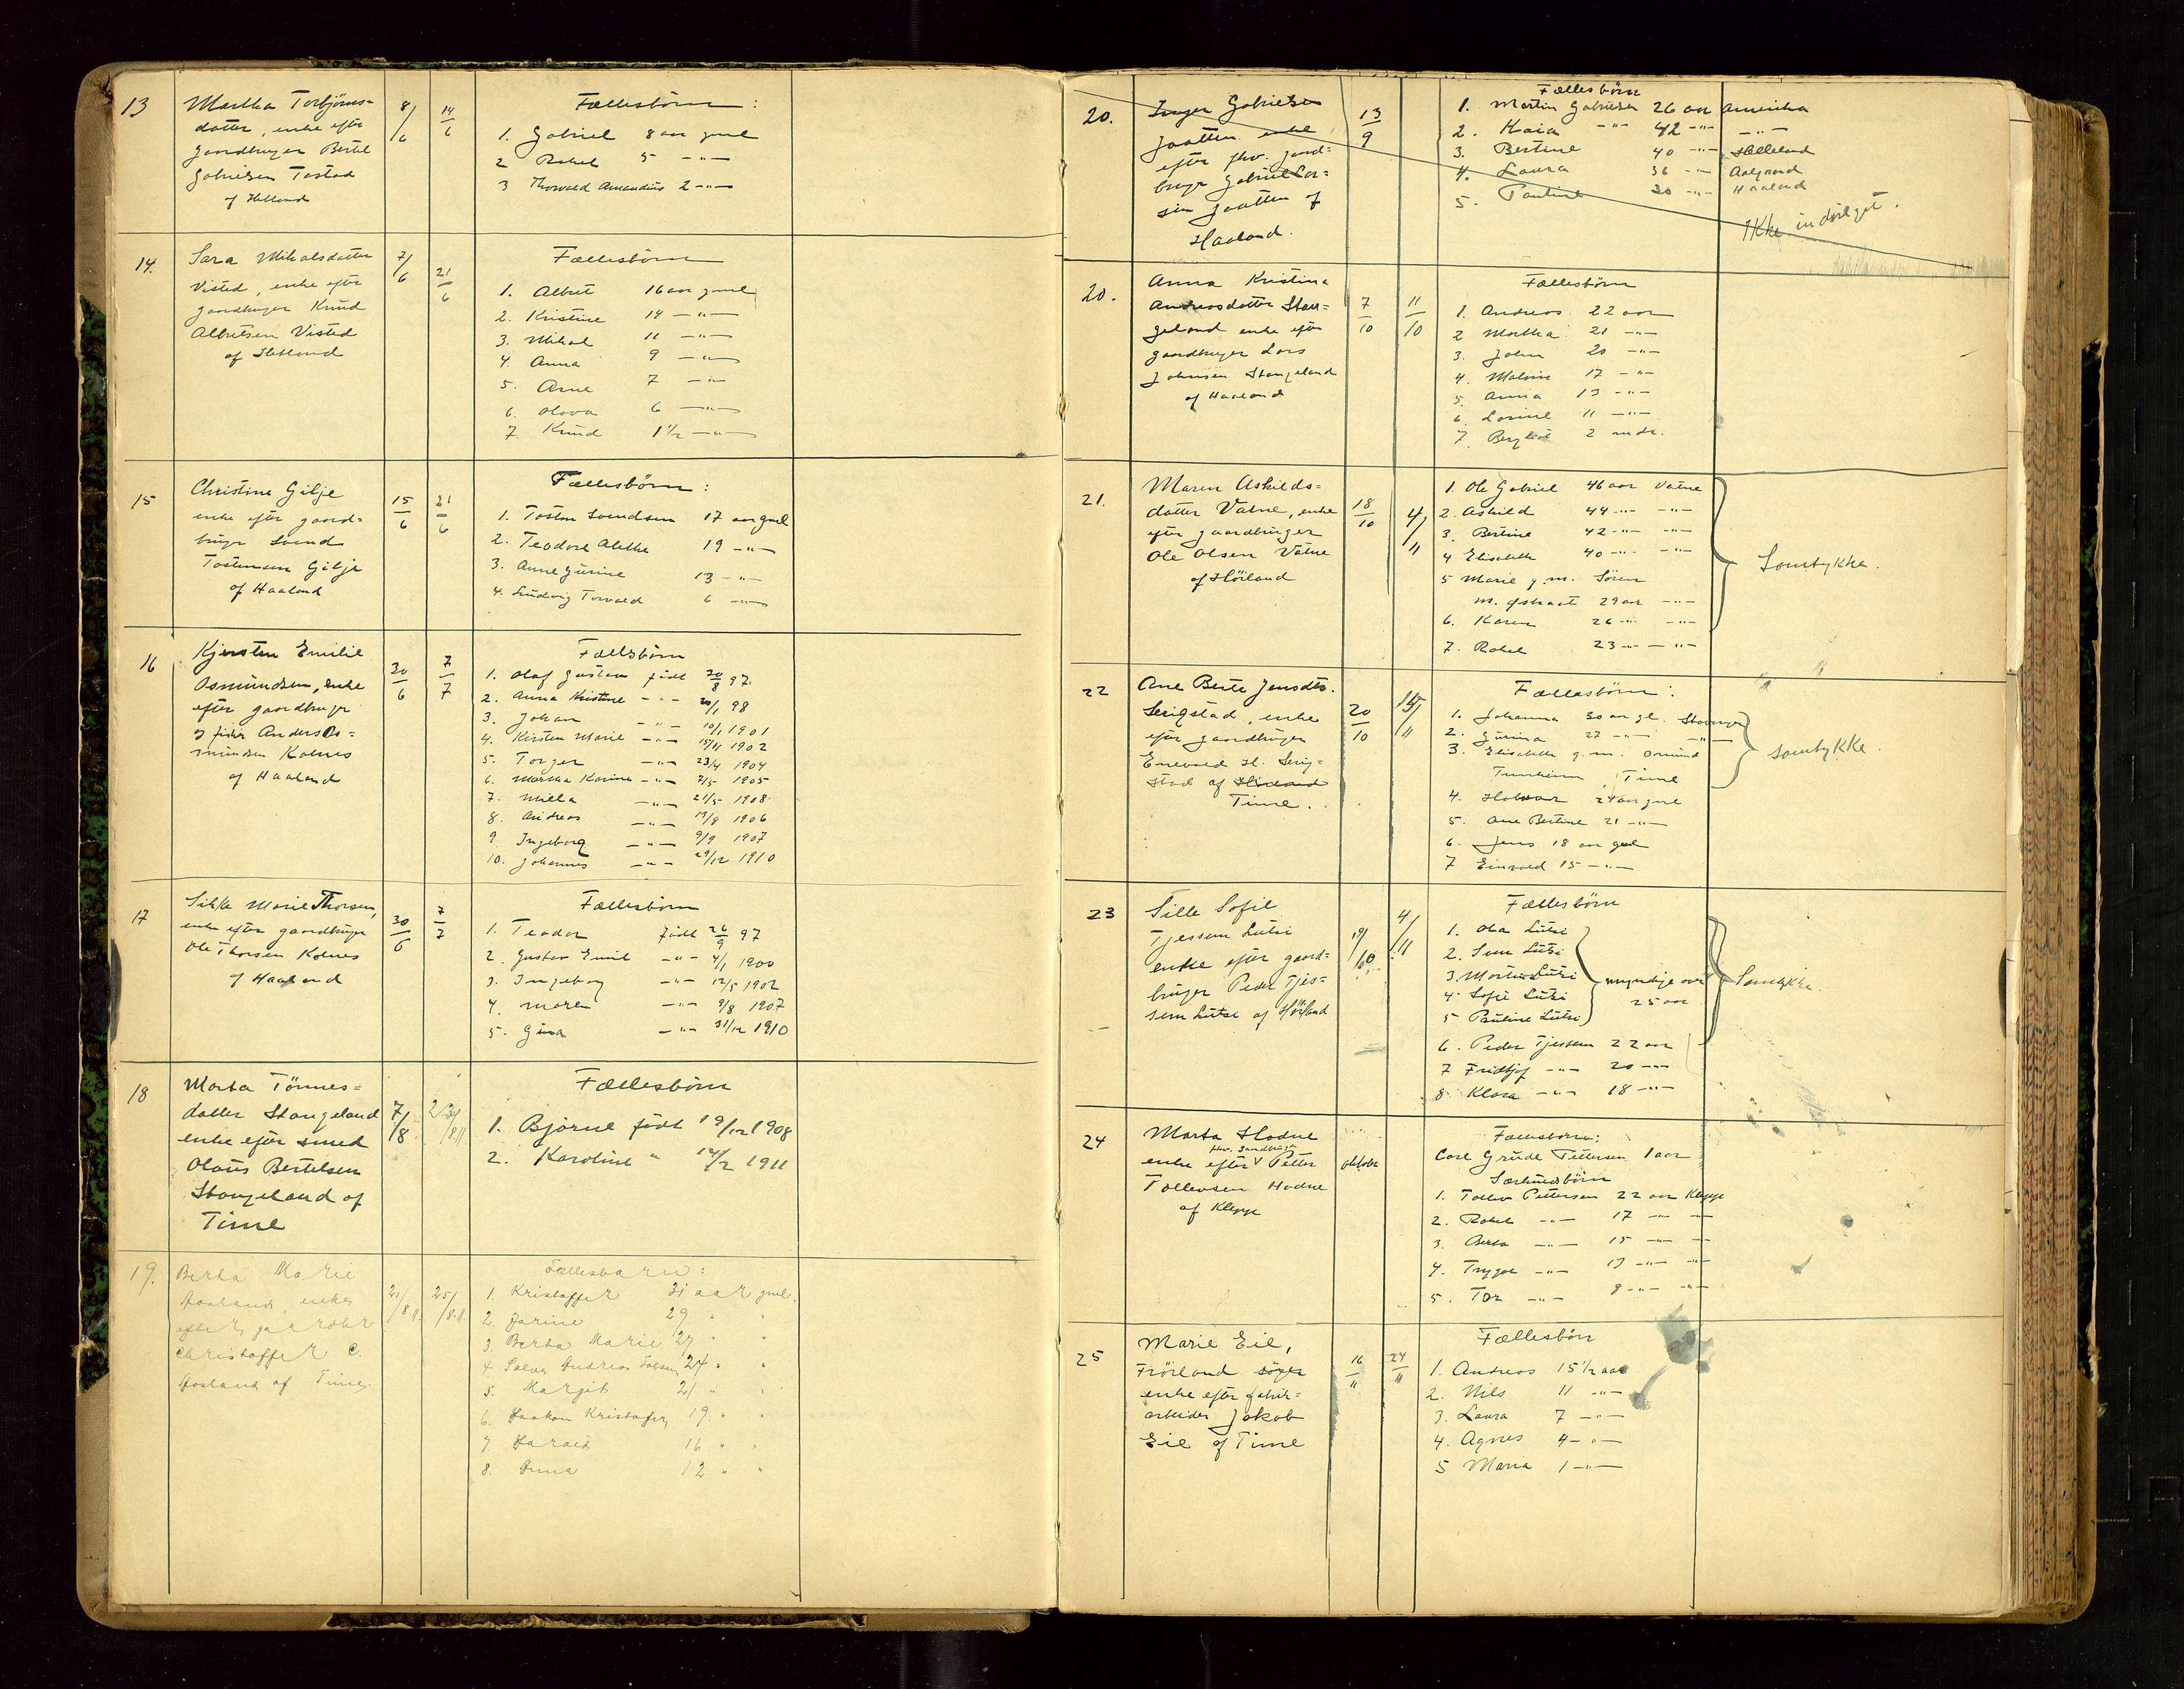 13
Martha Torbjörns=
datter, enke efter
gaardbruger Bertel
Gabrielsen Tastad
af Hetland
8/6
14/6
Fællesbörn:
1. Gabriel 8 aar gml
2 Rakel 5 -"-
3 Thorvald Amandius 2 -"-
14.
Sara Mikalsdatter
Visted, enke efter
gaardbruger Knud
Albretsen Visted
af Hetland
7/6
21/6
Fællesbörn
1. Albret 16 aar gml
2. Kristine 14 -"-
3. Mikal 11 -"-
4. Anna 9 -"-
5. Arne 7 -"-
6. Olava 6 -"-
7. Knud 1 1/2 -"-
15
Christine Gilje
enke efter gaard=
bruger Svend
Tostensen Gilje
af Haaland
15/6
21/6
Fællesbörn:
1. Tosten Svendsen 17 aar gml
2. Teodore Alethe 19 -"-
3. Anne Gurine 13 -"-
4. Ludvig Torvald 6 -"-
16
Kjersten Emilie
Osmundsen, enke
efter gaardbruger
og fisker Anders Os=
mundsen Kolnes
af Haaland
30/6
7/7
Fællsbörn
1. Olaf Gustav födt 30/8 97.
2. Anna Kristine -"- 20/1 98
3. Johan -"- 10/1 1901
4. Kirsten Marie -"- 15/11 1902
5. Torger -"- 23/4 1904
6. Martha Karine -"- 2/5 1905
7. Milla -"- 21/5 1908
8. Andreas -"- 13/8 1906
9 Ingeborg -"- 9/9 1907
10. Johannes -"- 29/12 1910
17
Sikke Marie Thorsen,
enke efter gaardbruger
Ole Thorsen Kolnes
af Haaland
30/6
7/7
Fællesbörn
1. Teodor födt 26/9 97
2. Gustav Emil -"- 4/1 1900
3. Ingeborg -"- 12/5 1902
4. Maren -"- 9/8 1907
5. Gina -"- 31/12 1910
18
Marta Tönnes=
datter Stangeland
enke efter smed
Olaus Bertelsen
Stangeland af
Time
7/8
Fællesbörn
1. Bjarne födt 19/12 1908
2. Karoline " 14/2 1911
19.
Berta Marie
Aasland, enke
efter gaardbr
Christoffer C.
Aasland af Time.
21/8.11.
25/8.11.
Fællesbarn:
1. Kristoffer 31 aar gml.
2. Jarine 29 " "
3. Berta Marie 27 " "
4. Andreas 24 " "
5. Margit 21 " "
6. Haakon Kristofer 19 " "
7. Harald 16 " "
8. Anna 12 " "
20.
Inger Gabrielsen
Jaatten enke
efter fhv. gaard=
bruger Gabriel Lar=
sen Jaatten af
Haaland.
13/9
Fællesbörn
1. Martin Gabrielsen 26 aar Amerika
2. Kaia -"- 42 -"- -"-
3. Bertine 40 -"- Helleland
4. Laura 36 -"- Aalgaard
5. Pauline 30 -"- Haaland
Ikke indvilget.
20.
Anna Kristina
Andreasdatter Stan=
geland enke efter
gaardbruger Lars
Johnsen Stangeland
af Haaland
7/10
11/10
Fællesbörn
1. Andreas 22 aar
2 Martha 21 -"-
3. John 20 -"-
4. Malvin 17 -"-
5. Anna 13 -"-
6. Lovine 11 -"-
7. 2 mdr.
21.
Maren Askilds=
datter Vatne, enke
efter gaardbruger
Ole Olsen Vatne
af Höiland
18/10
4/11
1. Ole Gabriel 46 aar Vatne
2. Askild 44 -"- -"-
3. Bertine 42 -"- -"-
4 Elisabeth 40 -"- -"-
5 Marie g.m. Sören
29 aar -"-
6. Karen 26 -"- -"-
7. Rakel 23 -"- -"-
Samtykke.
22
Ane Berte Jensdtr.
Serigstad, enke
efter gaardbruger
Enevald H. Serig=
stad af Höiland
Time.
20/10
15/11
Fællesbörn:
1. Johanna 30 aar gl. Stavanger
2. Gurina 27 -"- -"-
3. Elisabeth g.m. Omund
Tunheim, Time
4. Halvar 24 aar gml
5. Ane Bertine 21 -"-
6. Jens 18 aar gml
7 Einvald 15 -"-
samtykke.
23
Sille Sofie
Tjessem Lutsi
enke efter gaard=
bruger Peder Tjes=
sem Lutsi af Höiland
19/10
4/11
Fællesbörn
1. Ola Lutsi
2. Sem Lutsi
3. Martin Lutsi
4. Sofie Lutsi
5 Pauline Lutsi
myndige over
25 aar
6. Peder Tjessem 22 aar
7 Fridtjof -"- 20 -"-
8. Klara -"- 18 -"-
Samtykke.
24
Marta Hodne
fhv. gaardbruger
enke efter V Petter
Tollevsen Hodne
af Klepp
oktober
Fællesbörn:
Carl Grude Pettersen 1 aar
Særkuldsbörn
1. Tollev Pettersen 22 aar Klepp
2. Rakel -"- 17 -"- -"-
3. Berta -"- 15 -"- -"-
4. Trygve -"- 13 -"- -"-
5. Tor -"- 8 -"- -"-
25
Marie Eie,
Fröiland söger
enke efter fabrik=
arbeider Jakob
Eie af Time
16/11
24/11
Fællesbörn
1. Andreas 15 1/2 aar
2. Nils 11 -"-
3. Laura 7 -"-
4. Agnes 4 -"-
5 Maria 1 -"-